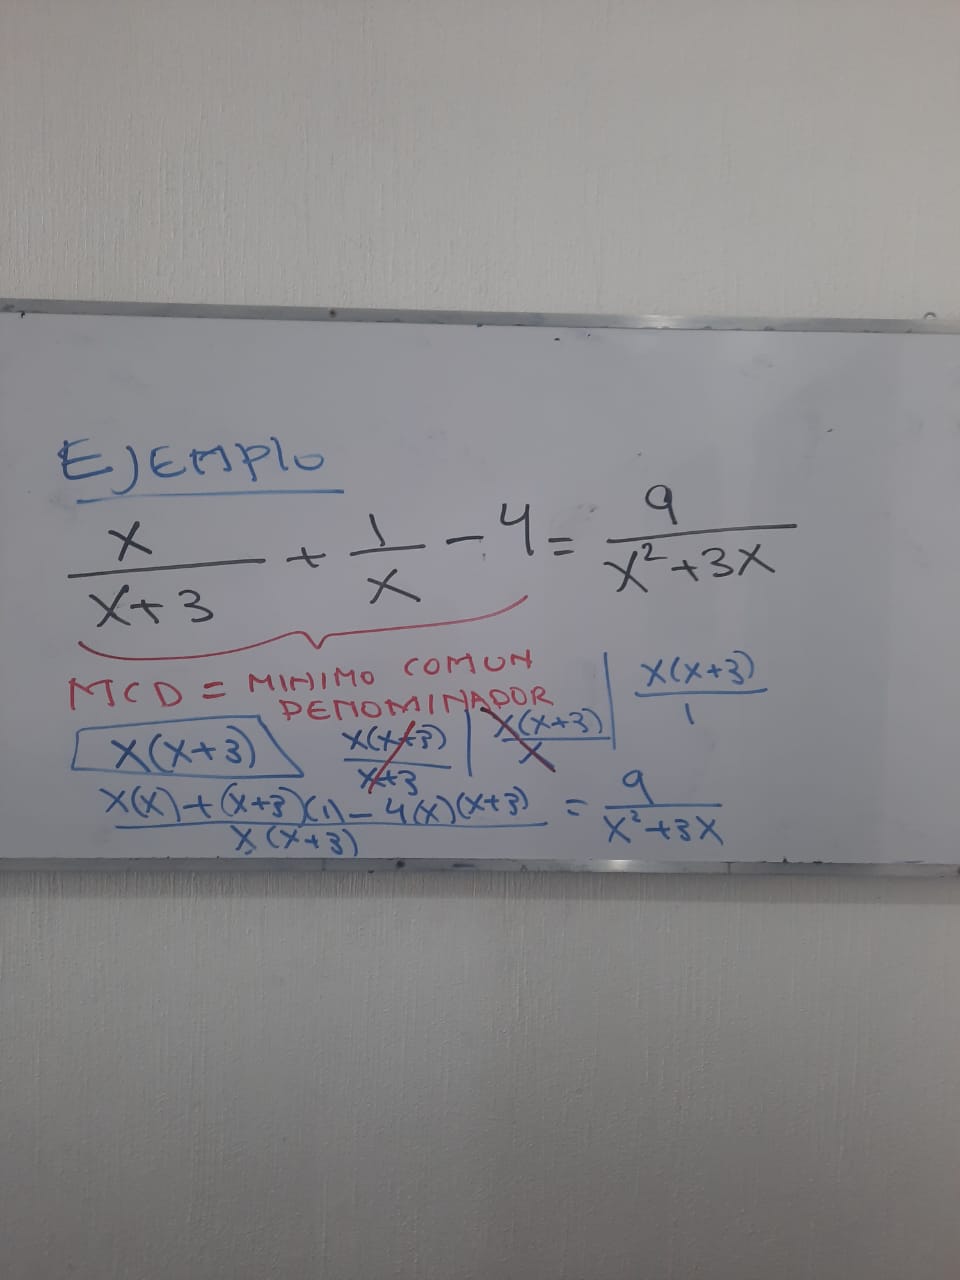 EJEMPLO
x/(x+3) + 1/x - 4 = 9/(x²+3x)
MCD = MINIMO COMUN
DENOMINADOR
x(x+3) x(x+3)/(x+3) | x(x+3)/x | x(x+3)/1
(x(x)+(x+3)(1)-4(x)(x+3))/(x(x+3)) = 9/(x²+3x)